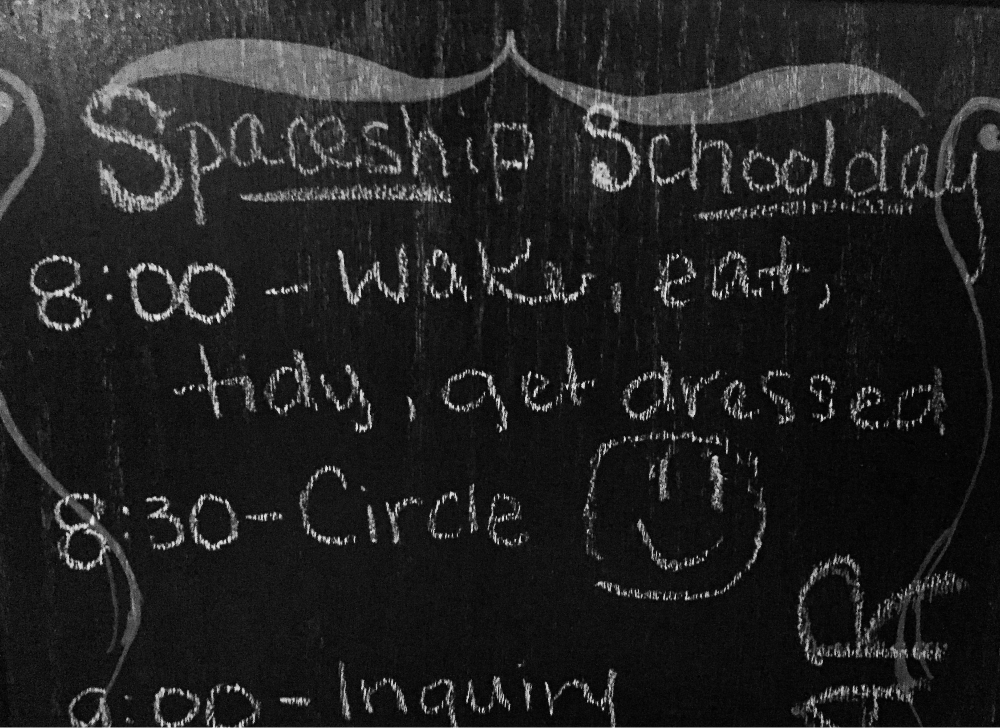 Spaceship Schoolday
8:00 - Wake, eat,
tidy, get dressed
8:30 - Circle
9:00 - Inquiry